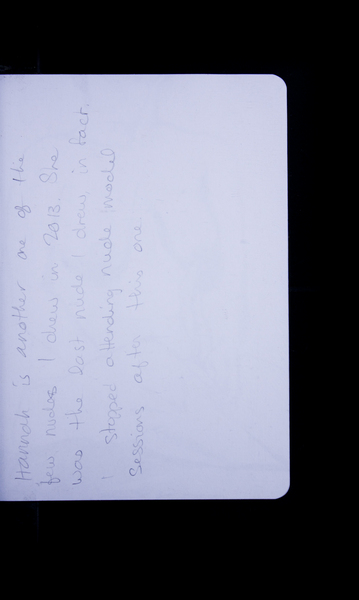 Hannah is another one of the
few nudes I drew in 2013. She
was the last nude I drew, in fact.
I stopped attending nude model
sessions after this one.